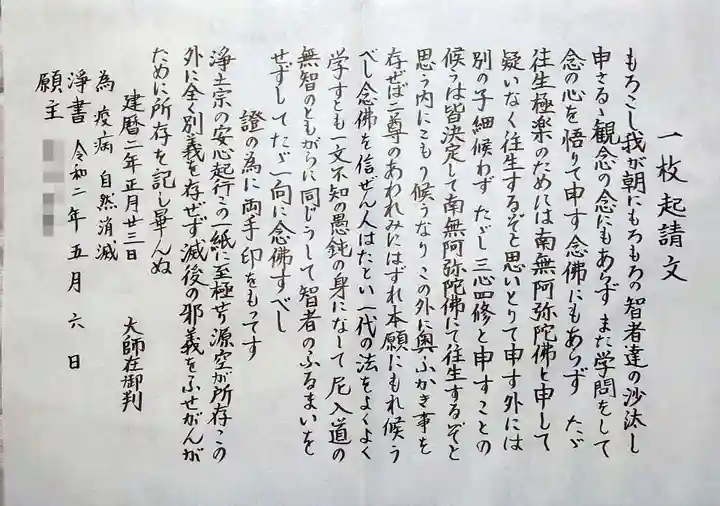 一枚起請文
もろこし我が朝にもろもろの智者達の沙汰し
申さるゝ観念の念にもあらず また学問をして
念の心を悟りて申す念佛にもあらず たゞ
往生極楽のためには南無阿弥陀佛と申して
疑いなく往生するぞと思いとりて申す外には
別の子細候わず たゞし三心四修と申すことの
候うは皆決定して南無阿弥陀佛にて往生するぞと
思う内にこもり候うなり この外に奥ふかき事を
存ぜば二尊のあわれみにはずれ本願にもれ候う
べし 念佛を信ぜん人はたとい一代の法をよくよく
学すとも一文不知の愚鈍の身になして 尼入道の
無智のともがらに同じうして智者のふるまいを
せずして たゞ一向に念佛すべし
證の為に両手印をもってす
浄土宗の安心起行この一紙に至極せり 源空が所存この
外に全く別義を存ぜず 滅後の邪義をふせがんが
ために所存を記し畢んぬ
建暦二年正月廿三日 大師在御判
為 疫病自然消滅
浄書 令和二年五月六日
願主